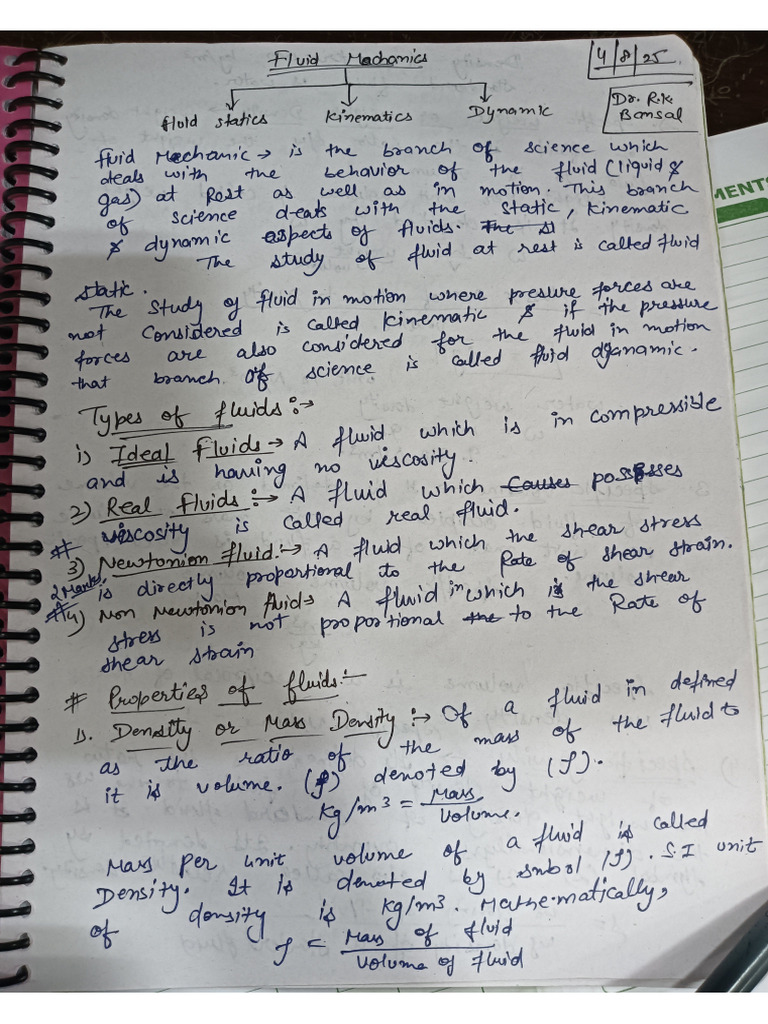 Fluid Mechanics
4/8/25.
Dr. R.K. Bansal
fluid statics kinematics Dynamic
fluid Mechanic → is the branch of science which
deals with the behavior of the fluid (liquid &
gas) at Rest as well as in motion. This branch
of science deals with the static, kinematic
& dynamic aspects of fluids. The st
The study of fluid at rest is called fluid
static.
The study of fluid in motion where presure forces are
not considered is called kinematic & if the pressure
forces are also considered for the fluid in motion
that branch of science is called fluid dynamic.
Types of fluids :→
i) Ideal Fluids → A fluid which is in compressible
and is having no viscosity.
2) Real Fluids :→ A fluid which Causes possesses
viscosity is called real fluid.
# 3) Newtonion fluid :→ A fluid which the shear stress
2 Marks is directly proportional to the Rate of shear strain.
# 4) Non Newtonion fluid → A fluid in which is the shear
stress is not proportional the to the Rate of
shear strain
# Properties of fluids :-
1). Density or Mass Density :→ Of a fluid in defined
as the ratio of the mass of the fluid to
it is volume. (ρ) denoted by (ρ).
Kg/m³ = Mass / Volume.
Mass per unit volume of a fluid is called
Density. It is denoted by smbol (ρ). S.I unit
of density is Kg/m³. Mathematically,
ρ = Mass of fluid / Volume of fluid
MENT